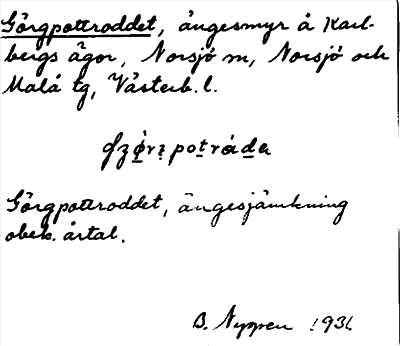 Görgpottroddet, ängesmyr å Karl-
bergs ägor, Norsjö sn, Norsjö och
Malå tg, Västerb. l.
Görgpottroddet, ängesjämkning
obek. årtal.
B. Nyppen 1931.